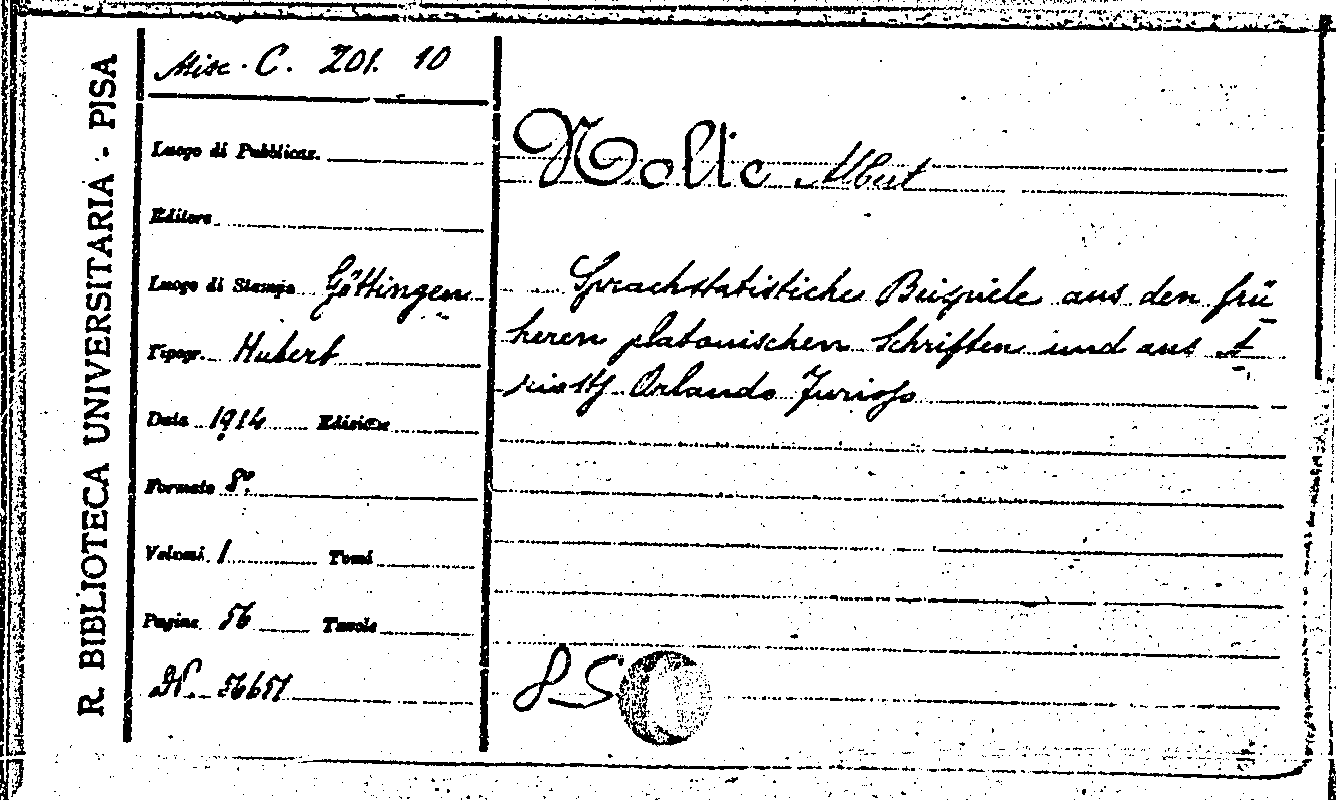 R. BIBLIOTECA UNIVERSITARIA - PISA
Misc. C. 201. 10
Luogo di Pubblicaz.
Editore
Luogo di Stampa Göttingen
Tipogr. Hubert
Data 1914 Edizione
Formato 8°
Volumi 1 Tomi
Pagine 56 Tavole
N. 56651
Nolte Albert
Sprachstatistiche Beispiele aus den frü
heren platonischen Schriften und aus A
riosts Orlando Furioso
85